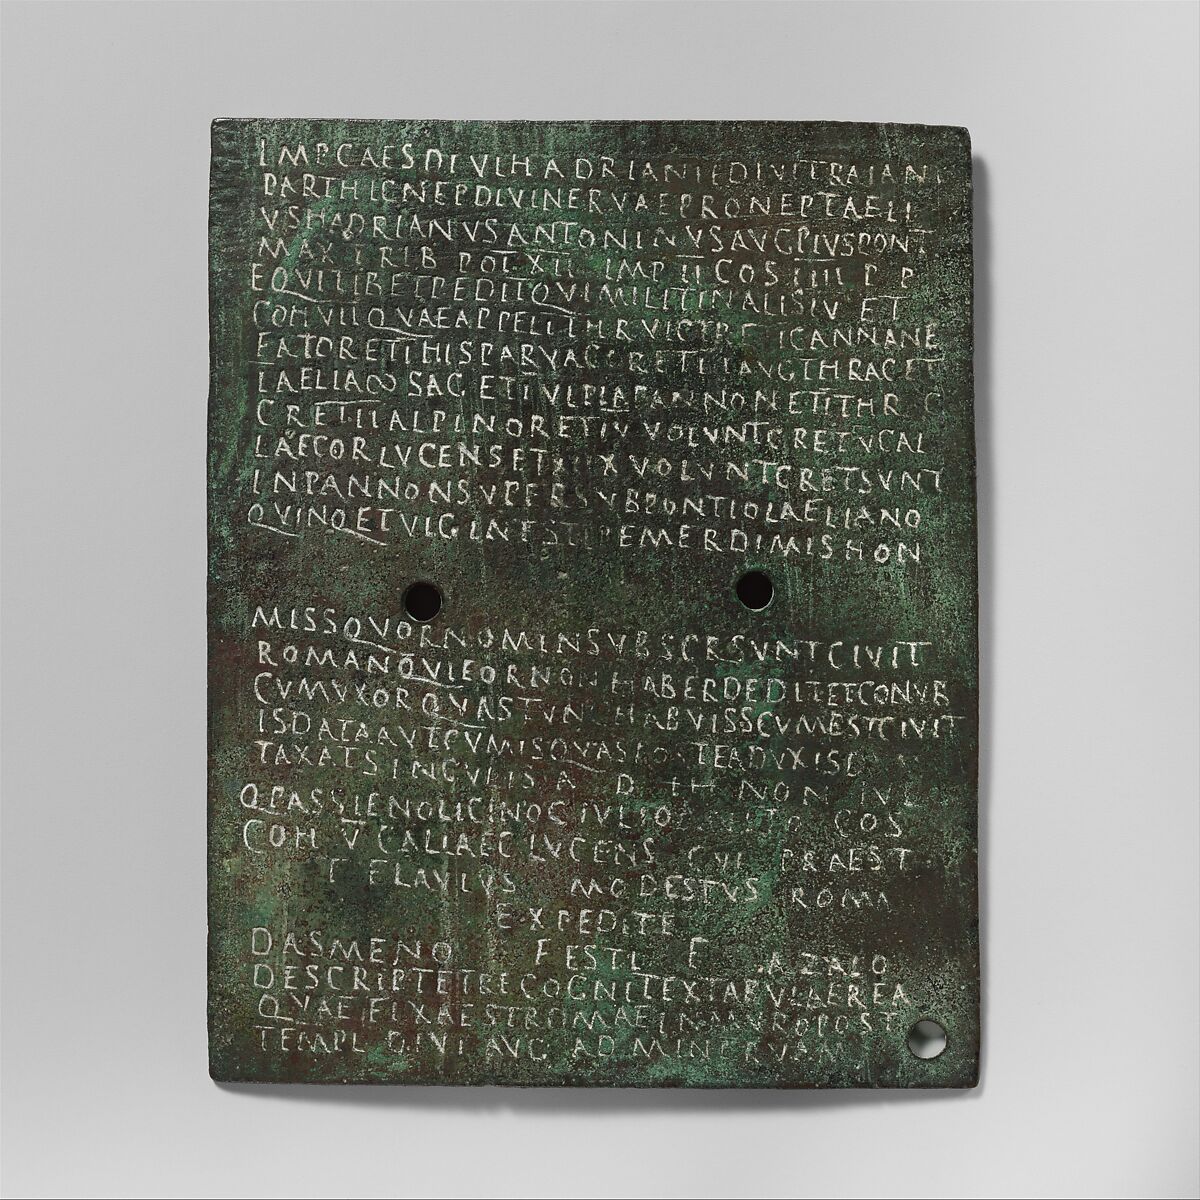 IMP CAES DIVI HADRIANI F DIVI TRAIANI
PARTHIC NEP DIVI NERVAE PRONEP T AELI
VS HADRIANVS ANTONINVS AVG PIVS PONT
MAX TRIB POT XII IMP II COS IIII P P
EQVITIB ET PEDIT QVI MILIT IN ALIS IV ET
COH VII QVAE APPELL I THR VICTR ET I CANNANE
FAT C R ET I HISP ARVAC C R ET III AVG THRAC ET
I AELIA SAG ET I VLPIA PANNON ET II THR C
C R ET II ALPINOR ET IV VOLVNT C R ET V CAL
LAECOR LVCENS ET XIIX VOLVNT C R ET SVNT
IN PANNON SVPER SVB PONTIO LAELIANO
QVINQ ET VIGINT STIP EMER DIMIS HON
MISS QVOR NOMIN SVBSCR SVNT CIVIT
ROMAN QVI EOR NON HABER DEDIT ET CONVB
CVM VXOR QVAS TVNC HABVISS CVM EST CIVIT
IS DATA AVT CVM IS QVAS POSTEA DVXISS
TAXAT SINGVLIS A D NON IVL
Q PASSIENO LICINO C IVLIO COS
COH V CALLAEC LVCENS CVI PRAEST
T FLAVIVS MODESTVS ROMA
EXPEDITE
DASMENO FESTI F AZALO
DESCRIPT ET RECOGNIT EX TABVLA EREA
QVAE FIXA EST ROMAE IN MVRO POST
TEMPL DIVI AVG AD MINERVAM